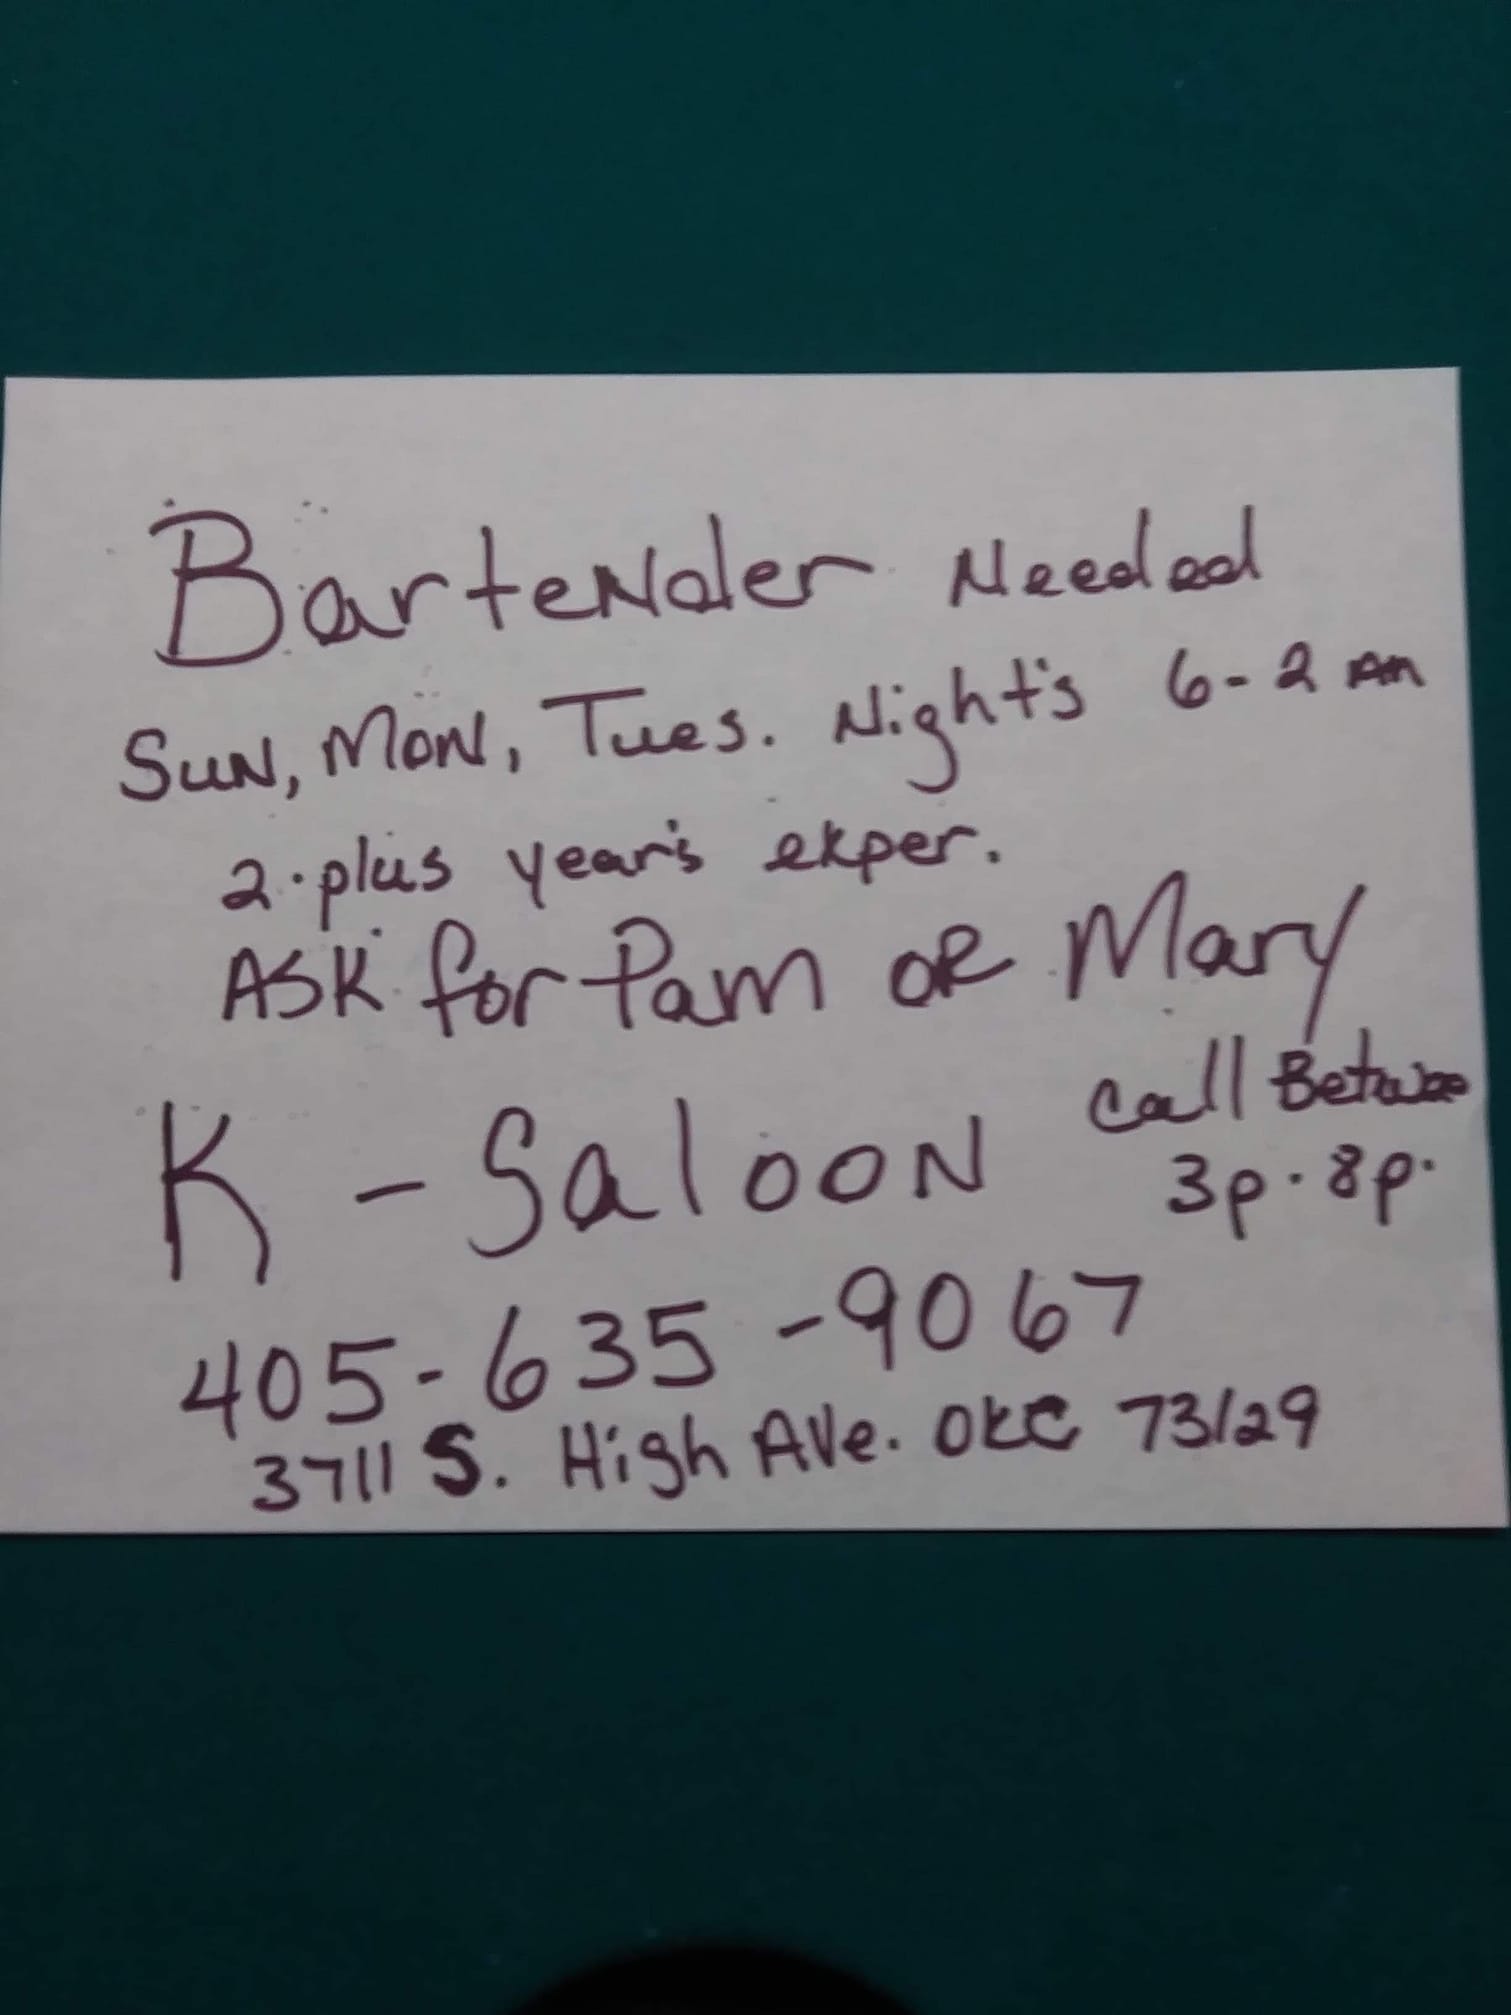 Bartender Needed
Sun, Mon, Tues. Night's 6-2 Am
2-plus year's exper.
ASK for Pam OR Mary
Call Betwee
3p-8p.
K-Saloon
405-635-9067
3711 S. High Ave. OKC 73129